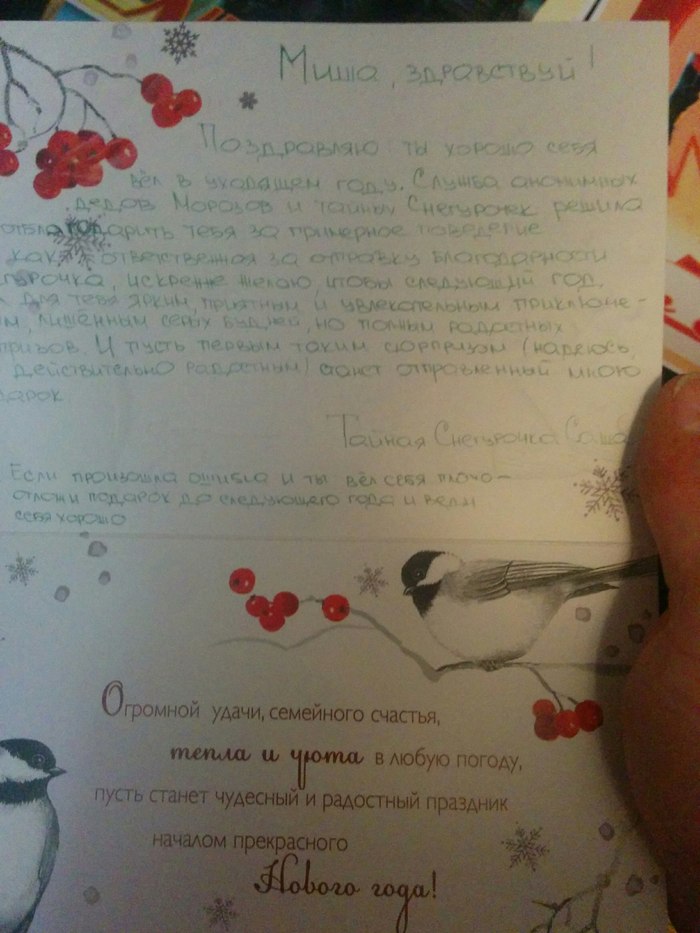 Миша, здравствуй!
Поздравляю: ты хорошо себя
вёл в уходящем году. Служба анонимных
дедов Морозов и тайных Снегурочек решила
отблагодарить тебя за примерное поведение
как ответственная за отправку благодарности
гурочка, искренне желаю, чтобы следующий год
для тебя ярким, приятным и увлекательным приключе-
м, лишенным серых будней, но полным радостных
призов. И пусть первым таким сюрпризом (надеюсь,
действительно радостным) станет отправленный мною
дарок
Тайная Снегурочка Саша
Если произошла ошибка и ты вёл себя плохо –
отложи подарок до следующего года и веди
себя хорошо
Огромной удачи, семейного счастья,
тепла и уюта в любую погоду,
пусть станет чудесный и радостный праздник
началом прекрасного
Нового года!